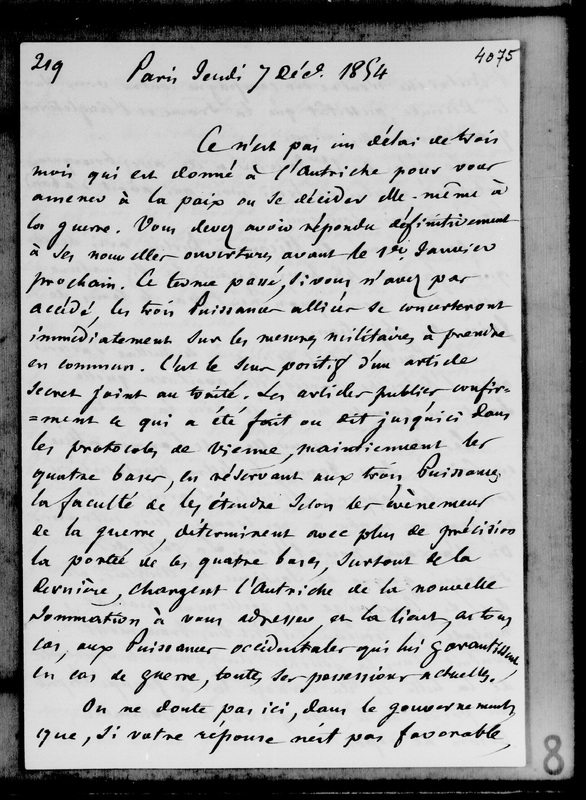 219
4075
Paris Jeudi 7 Déc. 1854
Ce n'est pas un délai de trois
mois qui est donné à l'Autriche pour vous
amener à la paix ou se décider elle-même à
la guerre. Vous devez avoir répondu définitivement
à ses nouvelles ouvertures avant le 1er Janvier
prochain. Ce terme passé, si vous n'avez pas
accédé, les trois Puissances alliées se concerteront
immédiatement sur les mesures militaires à prendre
en commun. C'est le sens positif d'un article
secret joint au traité. Les articles publics confir-
=ment ce qui a été fait ou dit jusqu'ici dans
les protocoles de Vienne, maintiennent les
quatre bases, en réservant aux trois Puissances
la faculté de les étendre selon les évènemens
de la guerre, déterminent avec plus de précision
la portée de ces quatre bases, surtout de la
dernière, chargent l'Autriche de la nouvelle
sommation à vous adresser et la lient, en tous
cas, aux Puissances occidentales qui lui garantissent,
en cas de guerre, toutes ses possessions actuelles.
On ne doute pas ici, dans le gouvernement,
que, si votre réponse n'est pas favorable,
8